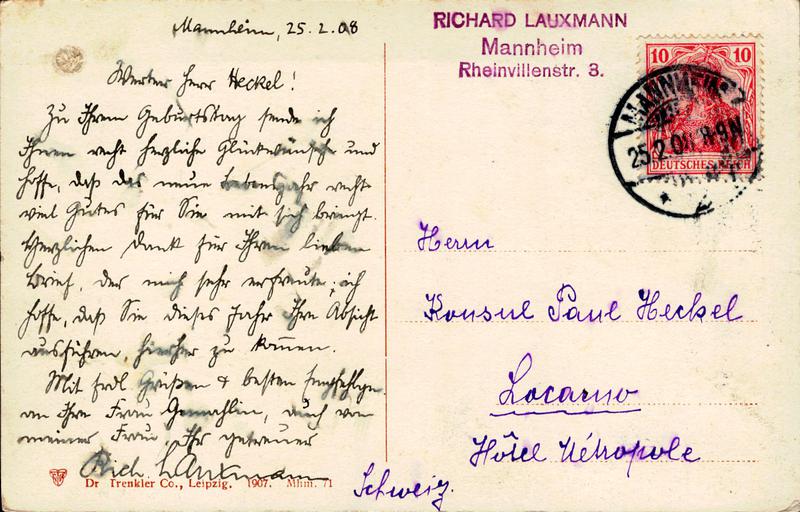 Mannheim, 25. 2. 08
Werter Herr Heckel!
Zu Ihrem Geburtstag sende ich
Ihnen recht herzliche Glückwünsche und
hoffe, daß das neue Lebensjahr recht
viel Gutes für Sie mit sich bringt.
Herzlichen Dank für Ihren lieben
Brief, der mich sehr erfreute; ich
hoffe, daß Sie dieses Jahr Ihre Absicht
ausführen, hierher zu kommen.
Mit frdl Grüßen & besten Empfehlgn
an Ihre Frau Gemahlin, auch von
meiner Frau, Ihr getreuer
Rich. Lauxmann
Dr Trenkler Co., Leipzig. 1907. Mhm. 71
RICHARD LAUXMANN
Mannheim
Rheinvillenstr. 3.
10 10
DEUTSCHES REICH
MANNHEIM
25.2.08 8-9N
Herrn
Konsul Paul Heckel
Locarno
Hôtel Métropole
Schweiz.